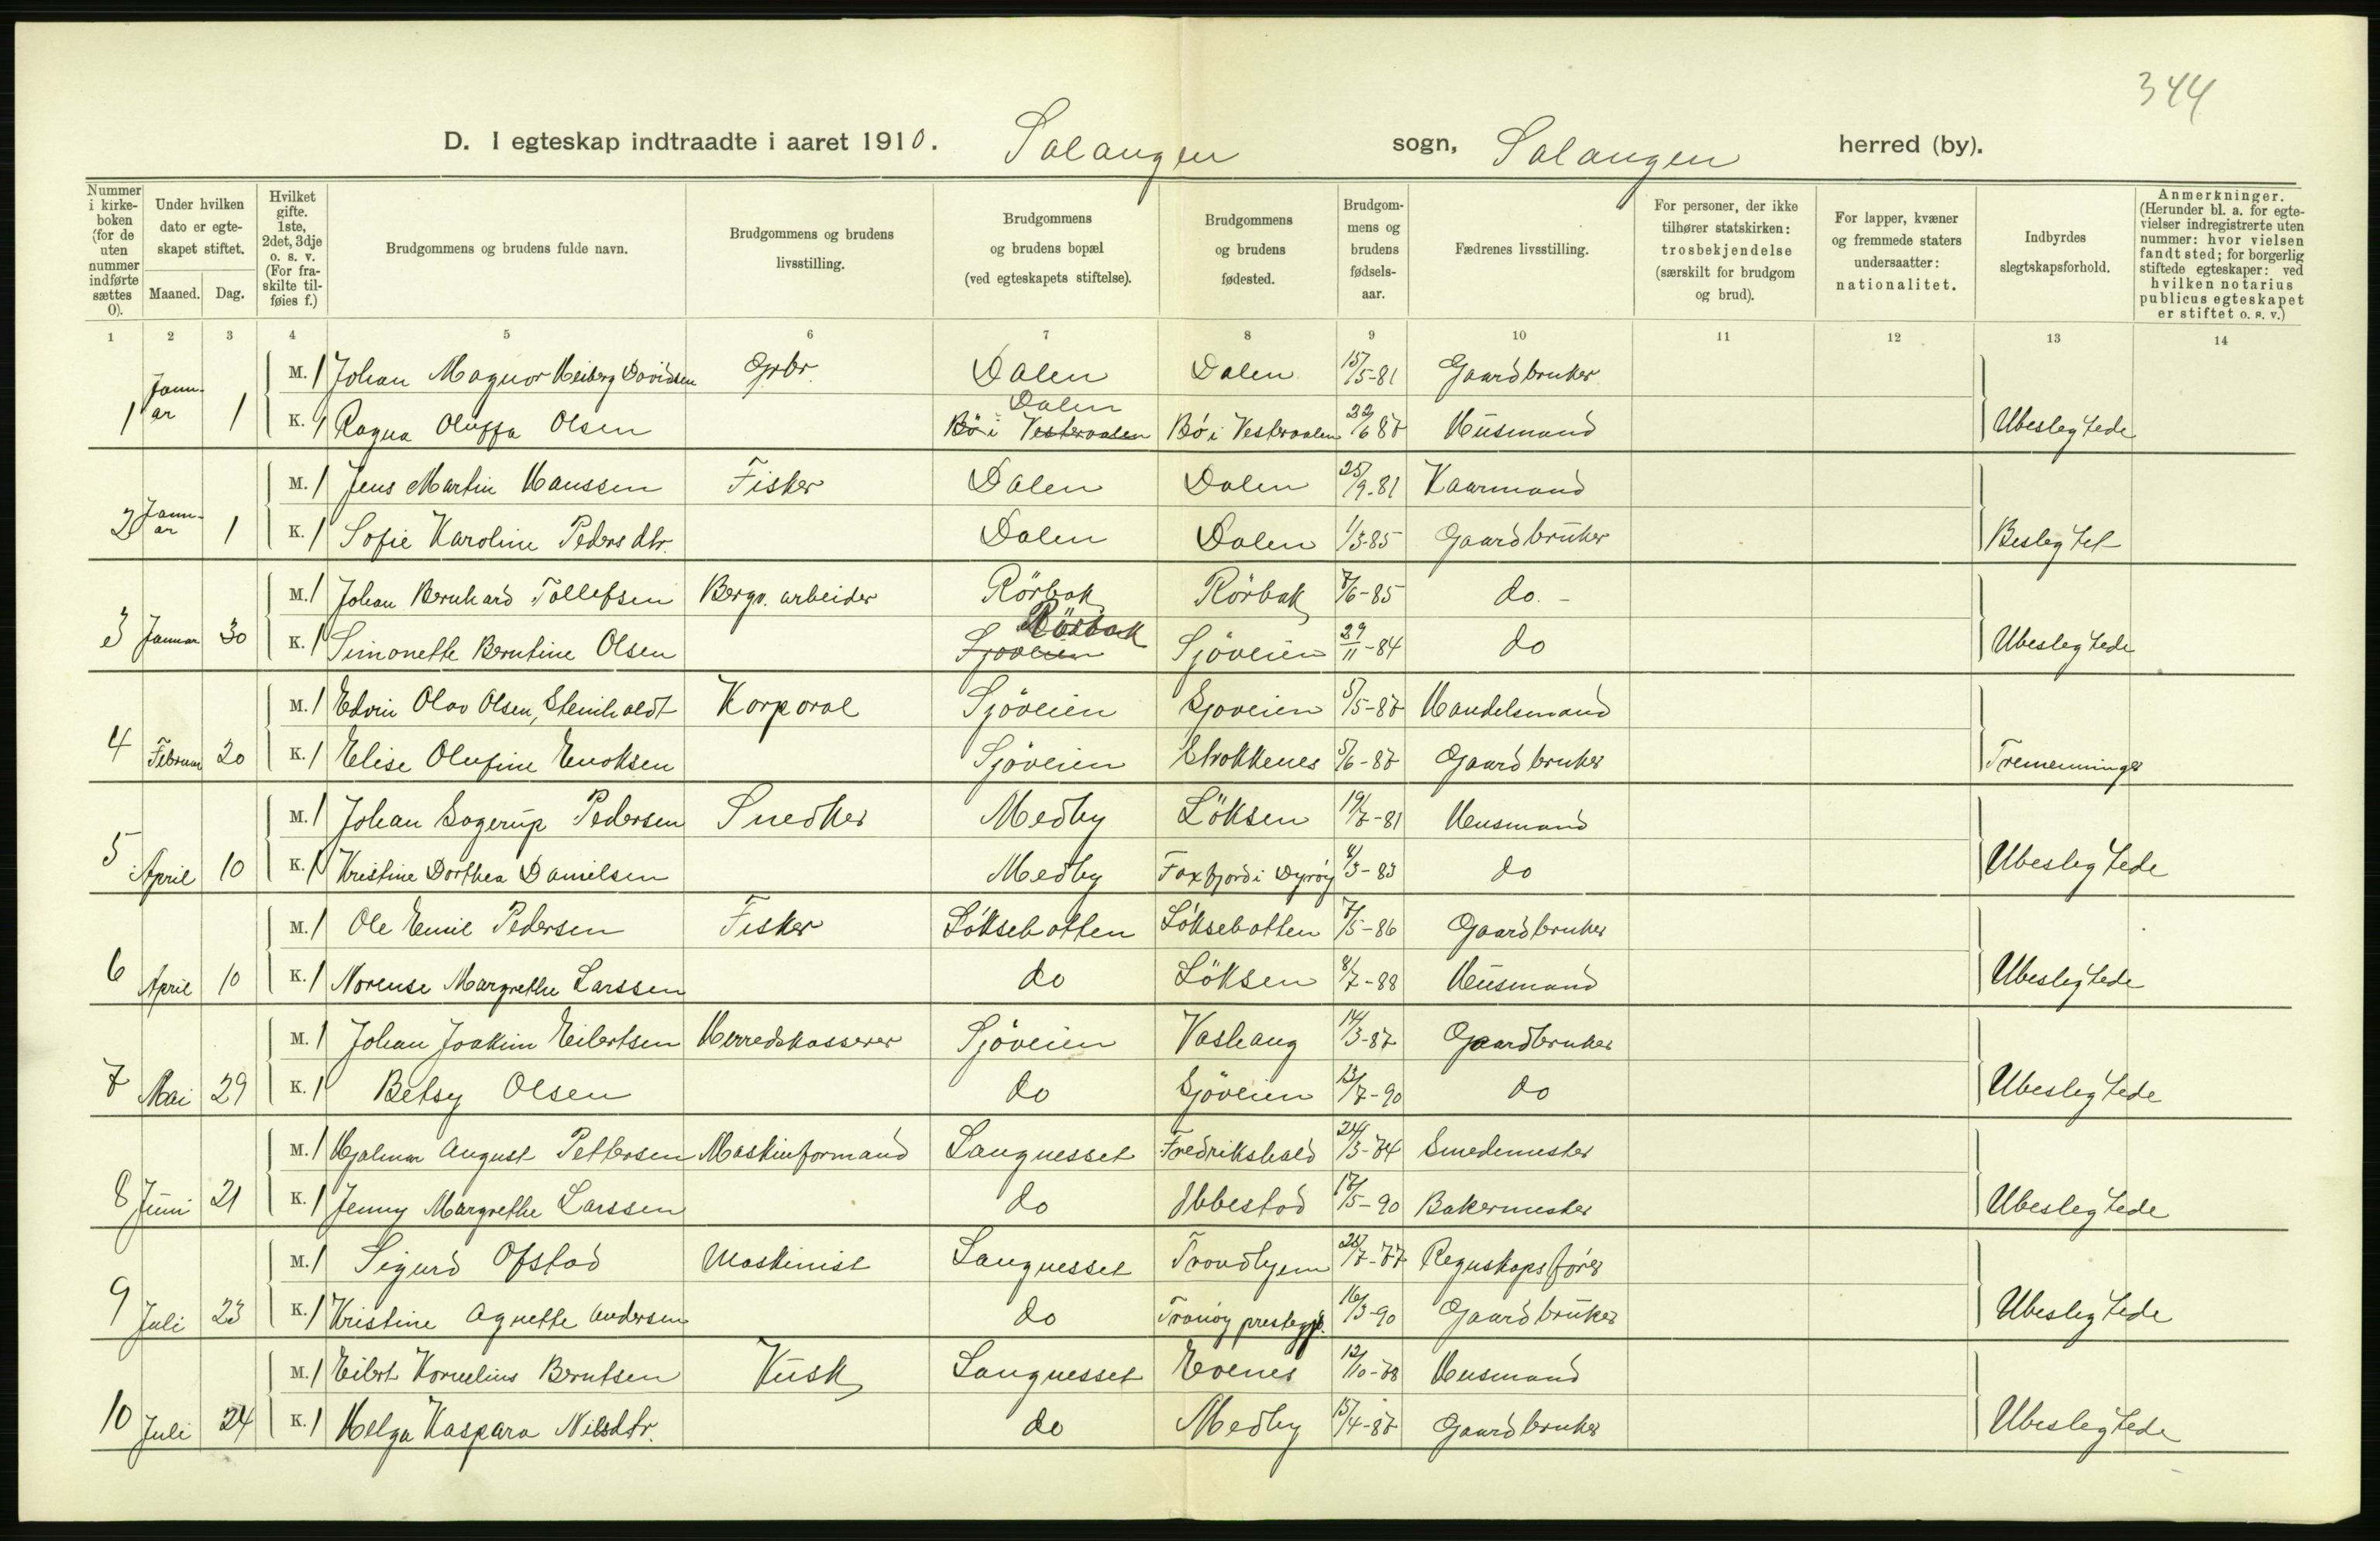 344
D. I egteskap indtraadte i aaret 1910. Salangen sogn, Salangen herred (by).
Nummer i kirke-boken (for de uten nummer indførte sættes 0).
Under hvilken dato er egte-skapet stiftet.
Maaned. Dag.
Hvilket gifte. 1ste, 2det, 3dje o. s. v. (For fra-skilte til-føies f.)
Brudgommens og brudens fulde navn.
Brudgommens og brudens livsstilling.
Brudgommens og brudens bopæl (ved egteskapets stiftelse).
Brudgommens og brudens fødested.
Brudgom-mens og brudens fødsels-aar.
Fædrenes livsstilling.
For personer, der ikke tilhører statskirken: trosbekjendelse (særskilt for brudgom og brud).
For lapper, kvæner og fremmede staters undersaatter: nationalitet.
Indbyrdes slegtskapsforhold.
Anmerkninger. (Herunder bl. a. for egte-vielser indregistrerte uten nummer: hvor vielsen fandt sted; for borgerlig stiftede egteskaper: ved hvilken notarius publicus egteskapet er stiftet o. s. v.)
1 2 3 4 5 6 7 8 9 10 11 12 13 14
M. 1 Johan Magnor Heiberg Davidsen Grbr. Dalen Dalen 15/5-81 Gaardbruker
1 Januar 1 K. 1 Ragna Oluffa Olsen Dalen Bö i Vesteraalen Bö i Vesteraalen 22/6 87 Husmand Ubeslegtede
M. 1 Jens Martin Hanssen Fisker Dalen Dalen 25/9-81 Kaarmand
2 Januar 1 K. 1 Sofie Karoline Pedersdtr. Dalen Dalen 1/3-85 Gaardbruker Beslegtet
M. 1 Johan Bernhard Tollefsen Bergv. arbeider Rörbak Rörbak 7/6-85 do. -
3 Januar 30 K. 1 Simonette Berntine Olsen Rörbak Sjöveien Sjöveien 29/11-84 do Ubeslegtede
M. 1 Edvin Olav Olsen, Steinholdt Korporal Sjöveien Sjöveien 5/5-87 Handelsmand
4 Februar 20 K. 1 Elise Olufine Enoksen Sjöveien Strokkenes 5/6-87 Gaardbruker Tremenninger
M. 1 Johan Sagerup Pedersen Snedker Medby Löksen 19/7-81 Husmand
5 April 10 K. 1 Kristine Dorthea Danielsen Medby Faxfjord i Dyröy 4/3-83 do Ubeslegtede
M. 1 Ole Emil Pedersen Fisker Löksebotten Löksebotten 7/5-86 Gaardbruker
6 April 10 K. 1 Norense Margrethe Larssen do Löksen 8/7-88 Husmand Ubeslegtede
M. 1 Johan Joakim Eilertsen Herredskasserer Sjöveien Vashaug 14/3-87 Gaardbruker
7 Mai 29 K. 1 Betsy Olsen do Sjöveien 13/7-90 do Ubeslegtede
M. 1 Hjalmar August Pettersen Maskinformand Langnesset Fredrikshald 24/3-74 Smedemester
8 Juni 21 K. 1 Jenny Margrethe Larssen do Ibbestad 17/5-90 Bakermester Ubeslegtede
M. 1 Sigurd Ofstad Maskinist Langnesset Trondhjem 28/7-77 Regnskapsförer
9 Juli 23 K. 1 Kristine Agnette Andersen do Tranöy prestegj. 16/3-90 Gaardbruker Ubeslegtede
M. 1 Eilert Kornelius Berntsen Kusk Langnesset Evenes 12/10-78 Husmand
10 Juli 24 K. 1 Helga Kaspara Nilsdtr. do Medby 15/4-87 Gaardbruker Ubeslegtede